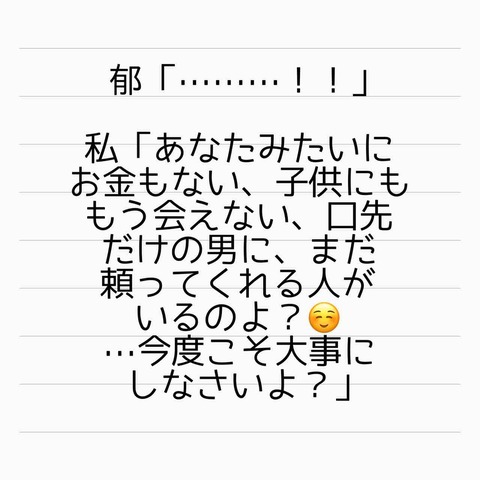 郁「………！！」
私「あなたみたいに
お金もない、子供にも
もう会えない、口先
だけの男に、まだ
頼ってくれる人が
いるのよ？☺️
…今度こそ大事に
しなさいよ？」